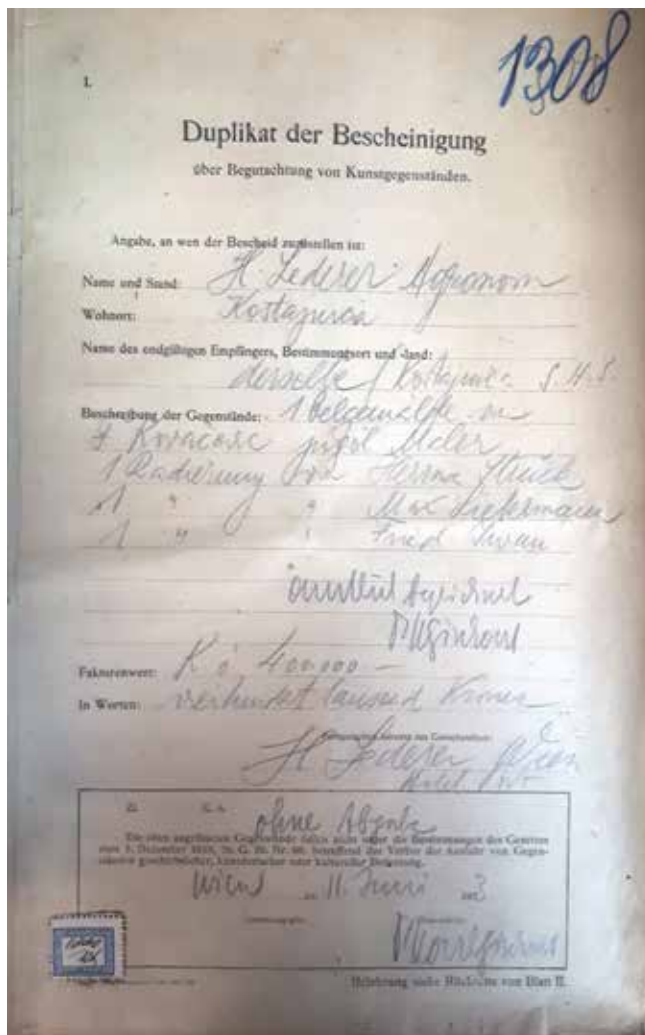 1308
I.
Duplikat der Bescheinigung
über Begutachtung von Kunstgegenständen.
Angabe, an wen der Bescheid zuzustellen ist:
Name und Stand: H. Lederer Agronom
Wohnort: Kostajnica
Name des endgültigen Empfängers, Bestimmungsort und -land:
derselbe / Kostajnica S. H. S.
Beschreibung der Gegenstände: 1 Oelgemälde von
Kovacevic Maler
1 Radierung von Struck
1 " " Max Liebermann
1 " "
amtlich
Fakturenwert: K ö 400.000 —
In Worten: vierhundert tausend Kronen
H Lederer Wien
ohne Abgabe
Die oben angeführten Gegenstände fallen nicht unter die Bestimmungen des Gesetzes
vom 5. Dezember 1918, St. G. Bl. Nr. 90, betreffend das Verbot der Ausfuhr von Gegen-
ständen geschichtlicher, künstlerischer oder kultureller Bedeutung.
Wien 11. Juni 3
Belehrung siehe Rückseite von Blatt II.